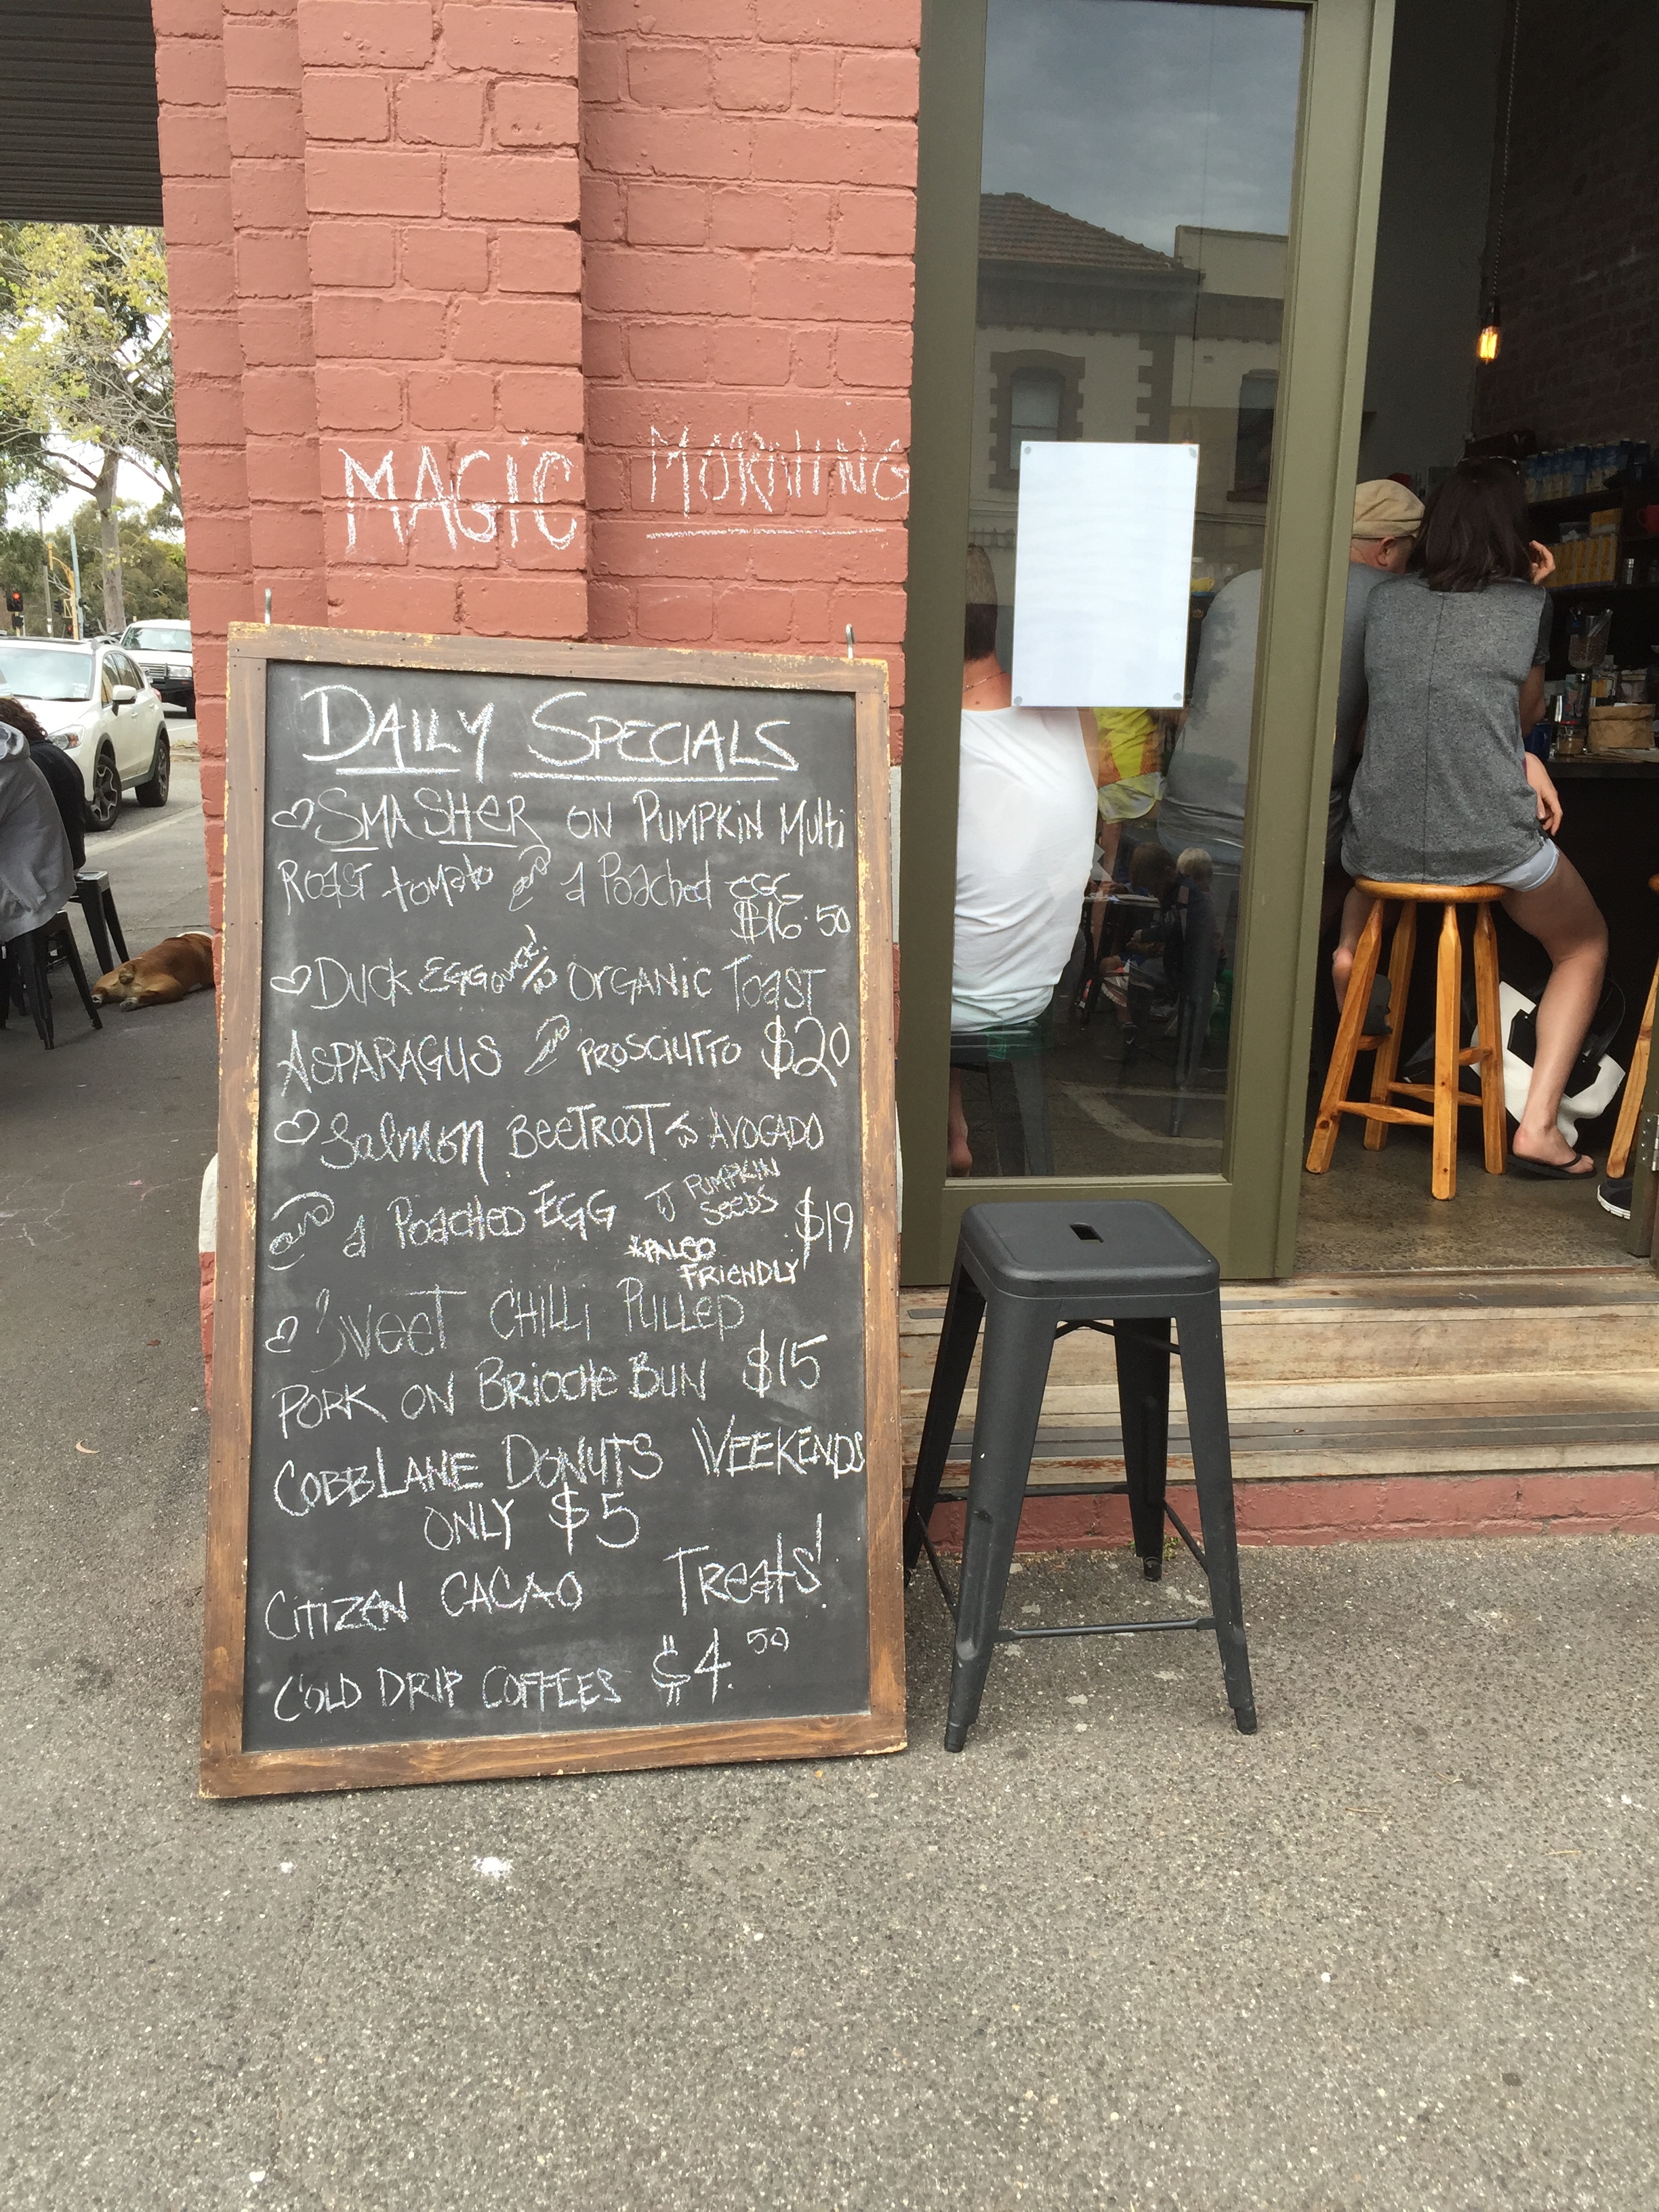 MAGIC MORNING
DAILY SPECIALS
SMASHER ON PUMPKIN Multi
ROAST tomato and a Poached EGG
$16.50
DUCK EGG ORGANIC TOAST
ASPARAGUS and PROSCIUTTO $20
Salmon BEETROOT AVOCADO
and a POACHED EGG PUMPKIN
SEEDS $19
*PALEO
FRIENDLY
SWEET CHILLI PULLED
PORK ON BRIOCHE BUN $15
COBBLANE DONUTS WEEKENDS
ONLY $5
CITIZEN CACAO Treats!
COLD DRIP COFFEES $4.50